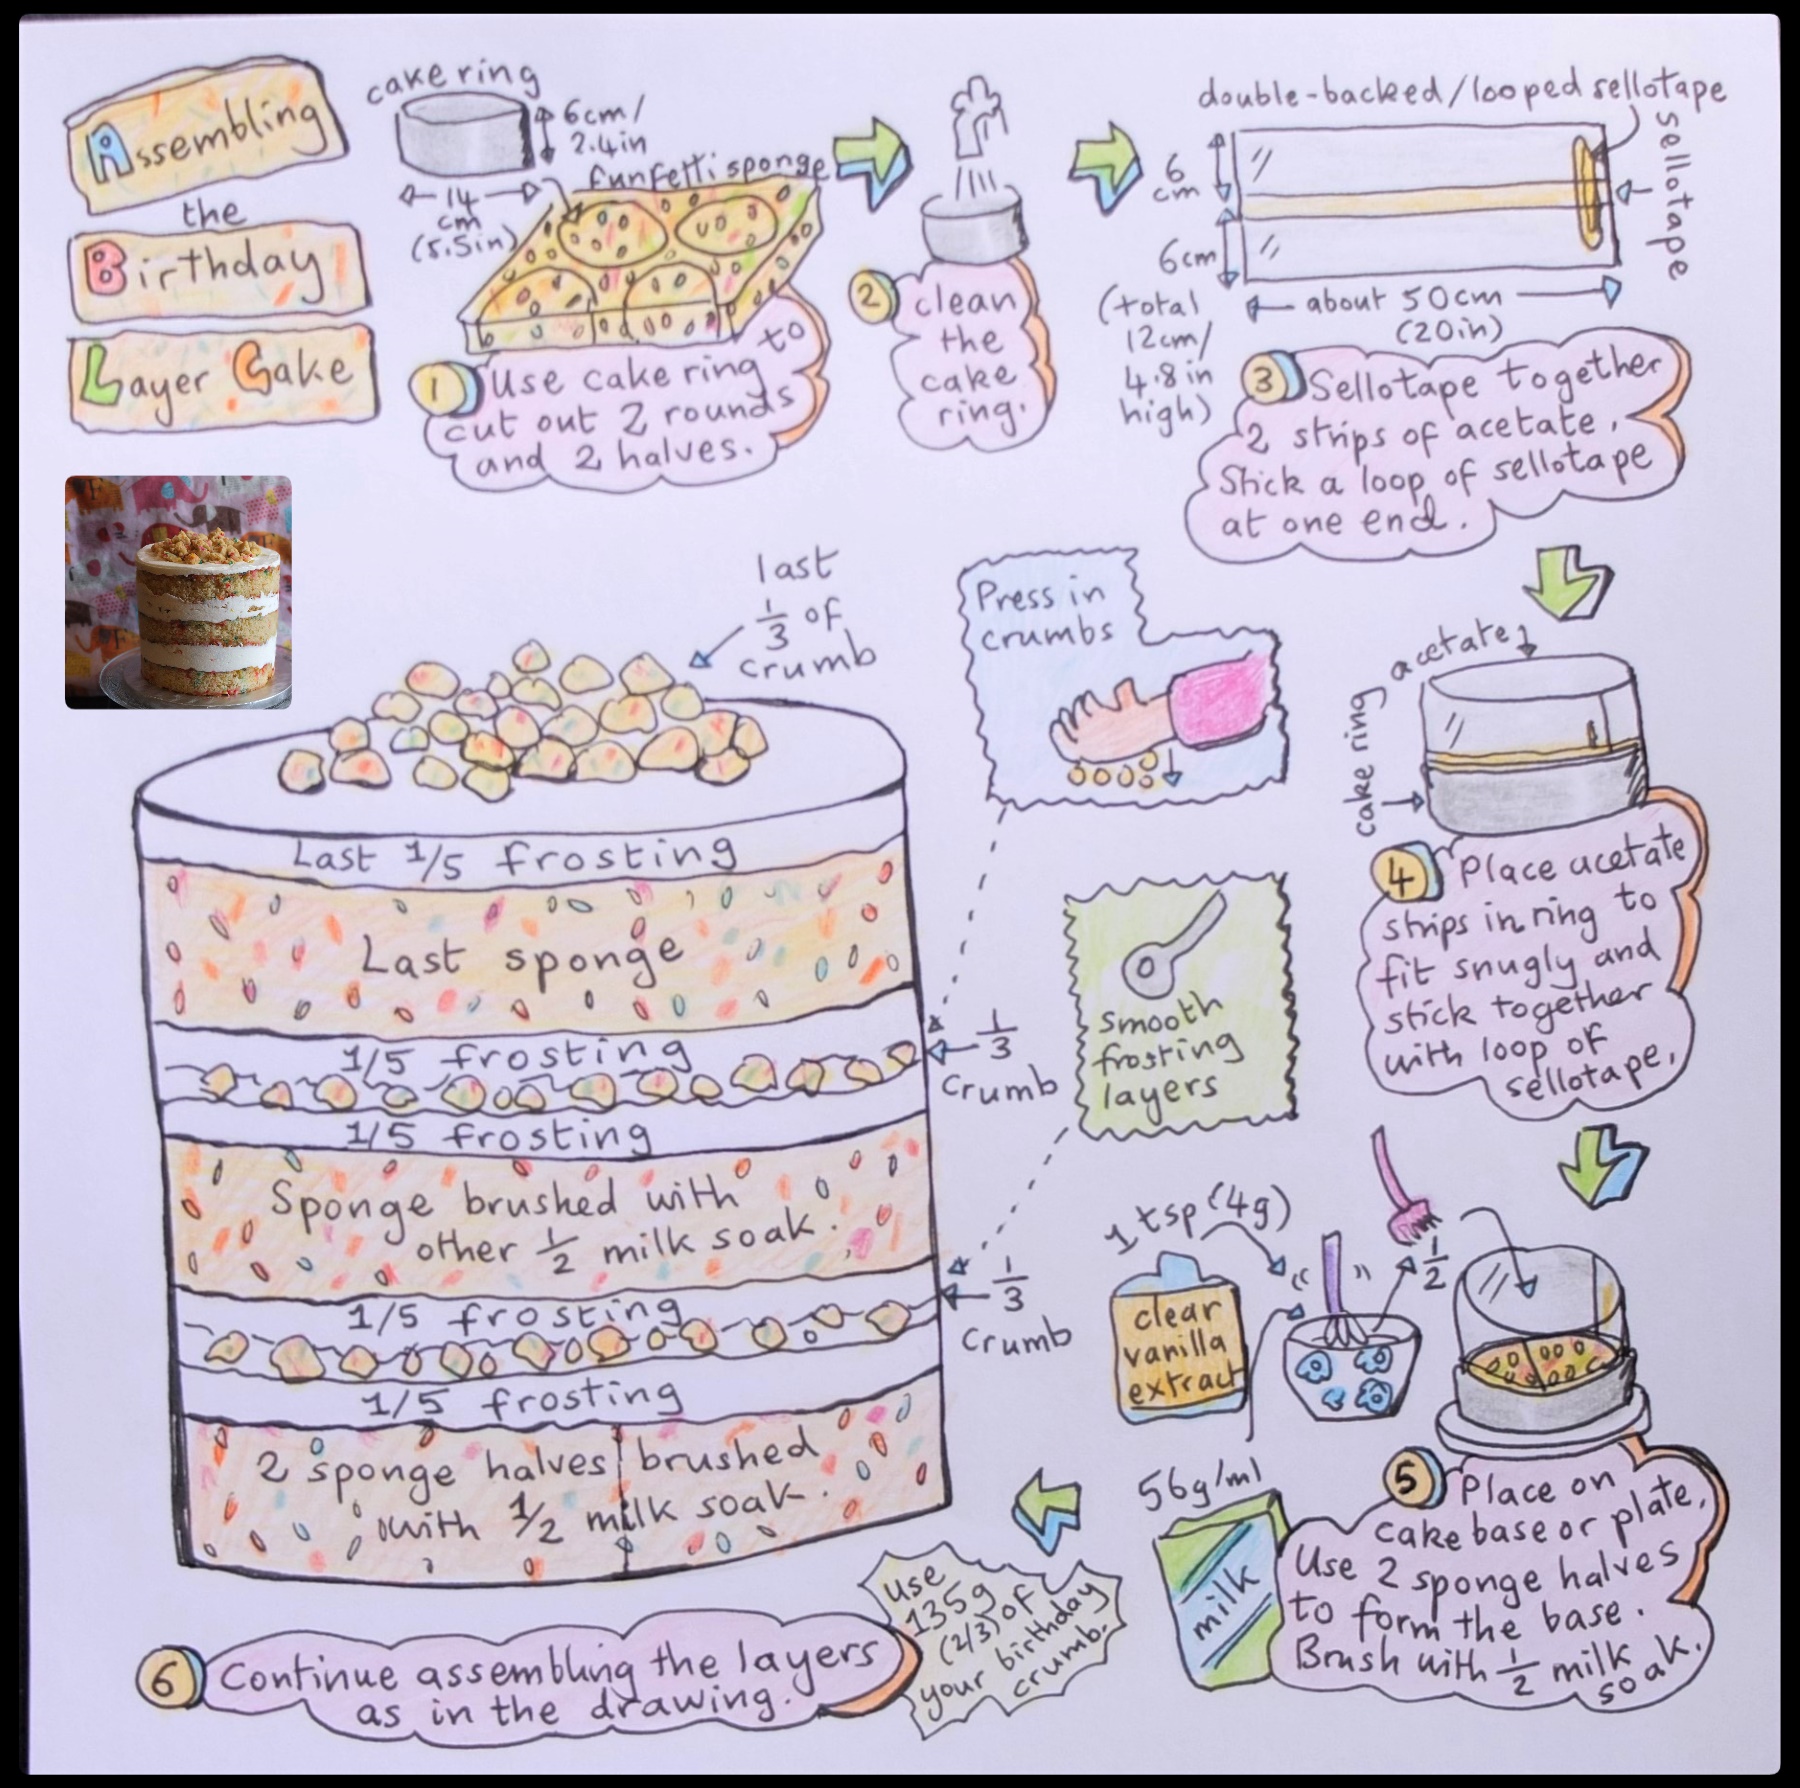 Assembling
the
Birthday
Layer Cake
cake ring
6cm/
2.4in
14
cm
(5.5in)
funfetti sponge
1 Use cake ring to
cut out 2 rounds
and 2 halves.
2 clean
the
cake
ring.
double-backed/looped sellotape
sellotape
6
cm
6cm
(total
12cm/
4.8in
high)
about 50cm
(20in)
3 Sellotape together
2 strips of acetate.
Stick a loop of sellotape
at one end.
acetate
cake ring
4 Place acetate
strips in ring to
fit snugly and
stick together
with loop of
sellotape.
1 tsp (4g)
clear
vanilla
extract
1/2
56g/ml
milk
5 Place on
cake base or plate.
Use 2 sponge halves
to form the base.
Brush with 1/2 milk
soak.
use
135g
(2/3) of
your birthday
crumb.
6 Continue assembling the layers
as in the drawing.
last
1/3 of
crumb
Press in
crumbs
smooth
frosting
layers
Last 1/5 frosting
Last sponge
1/5 frosting
1/3
crumb
1/5 frosting
Sponge brushed with
other 1/2 milk soak.
1/5 frosting
1/3
crumb
1/5 frosting
2 sponge halves brushed
with 1/2 milk soak.